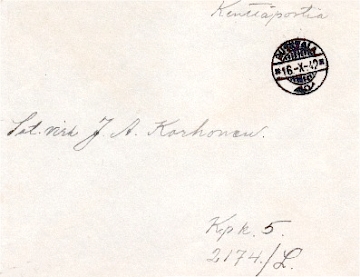 Kenttäpostia
16-X-42
Sot. virk J. A. Korhonen.
Kpk. 5.
2174./L.